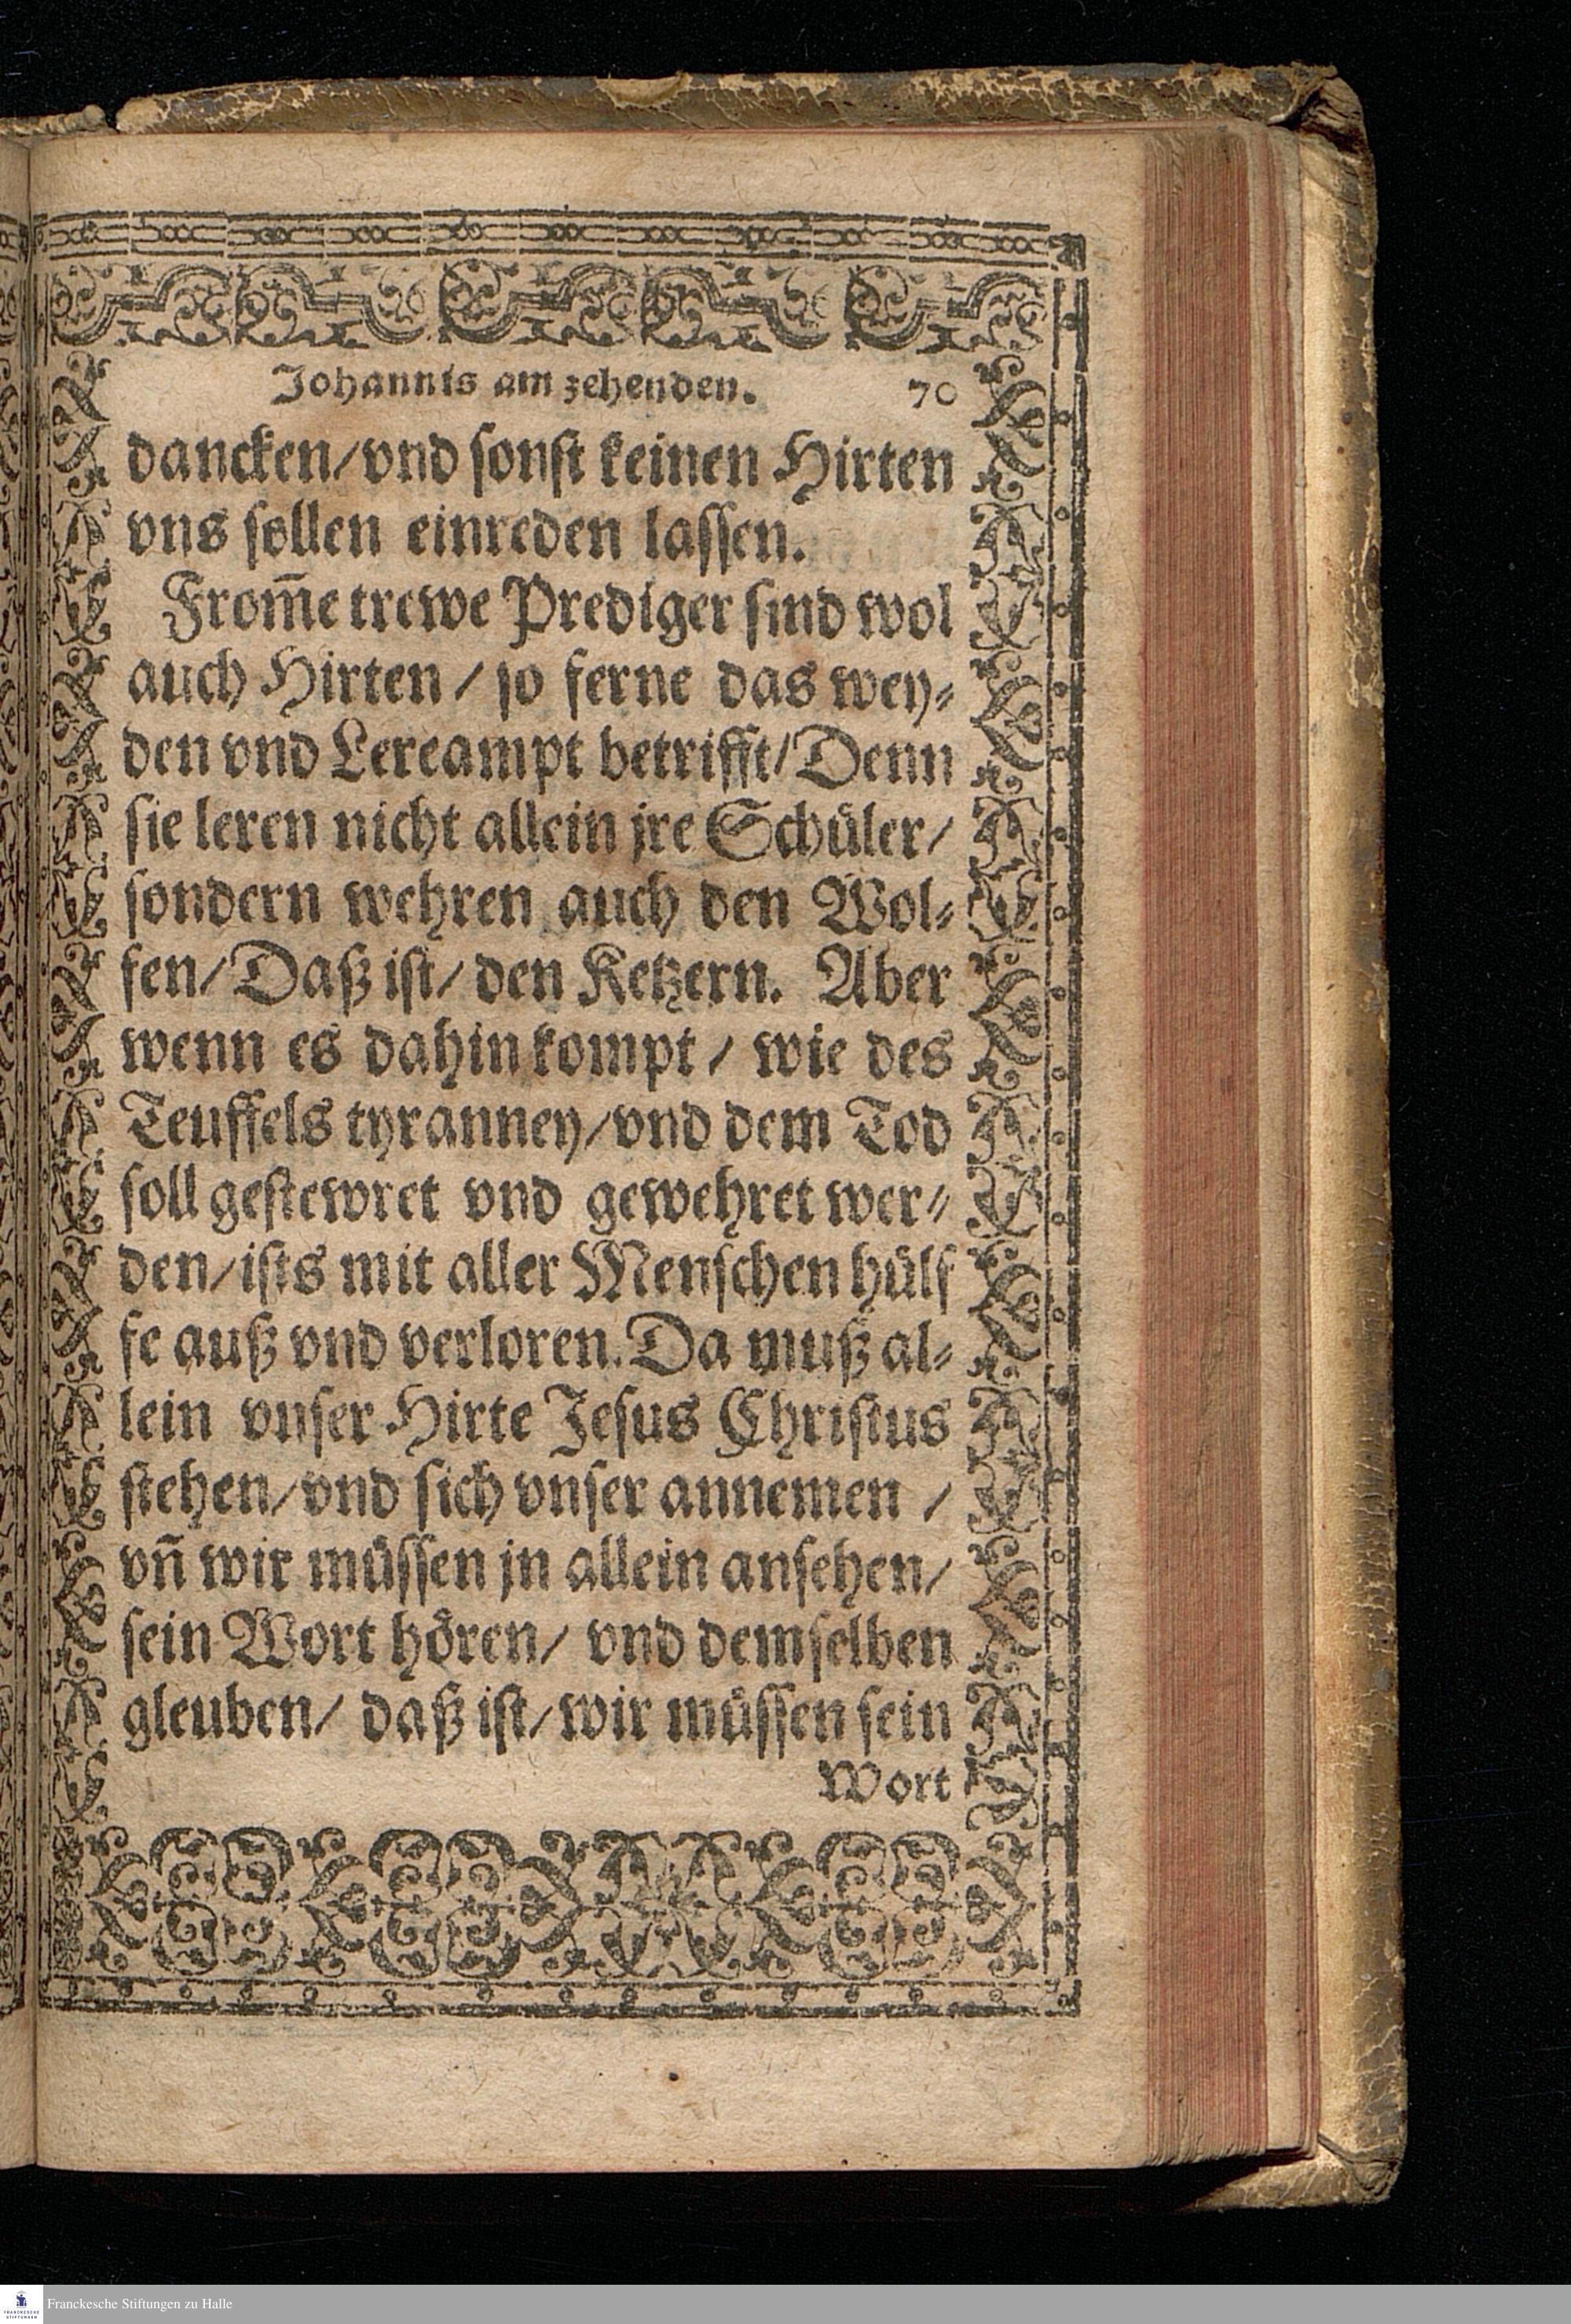 Johannis am zehenden. 70
dancken/vnd sonst keinen Hirten
vns sollen einreden lassen.
From̃e trewe Prediger sind wol
auch Hirten / so ferne das wey⸗
den vnd Lereampt betrifft/Denn
sie leren nicht allein jre Schuͤler/
sondern wehren auch den Wol⸗
fen/Daß ist/ den Ketzern. Aber
wenn es dahin kompt / wie des
Teuffels tyranney/vnd dem Tod
soll gestewret vnd gewehret wer⸗
den/ists mit aller Menschen huͤlf
fe auß vnd verloren. Da muß al⸗
lein vnser Hirte Jesus Christus
stehen/vnd sich vnser annemen /
vñ wir muͤssen jn allein ansehen/
sein Wort hoͤren/ vnd demselben
gleuben/ daß ist/wir muͤssen sein
Wort
FRANCKESCHE
STIFTUNGEN
Franckesche Stiftungen zu Halle